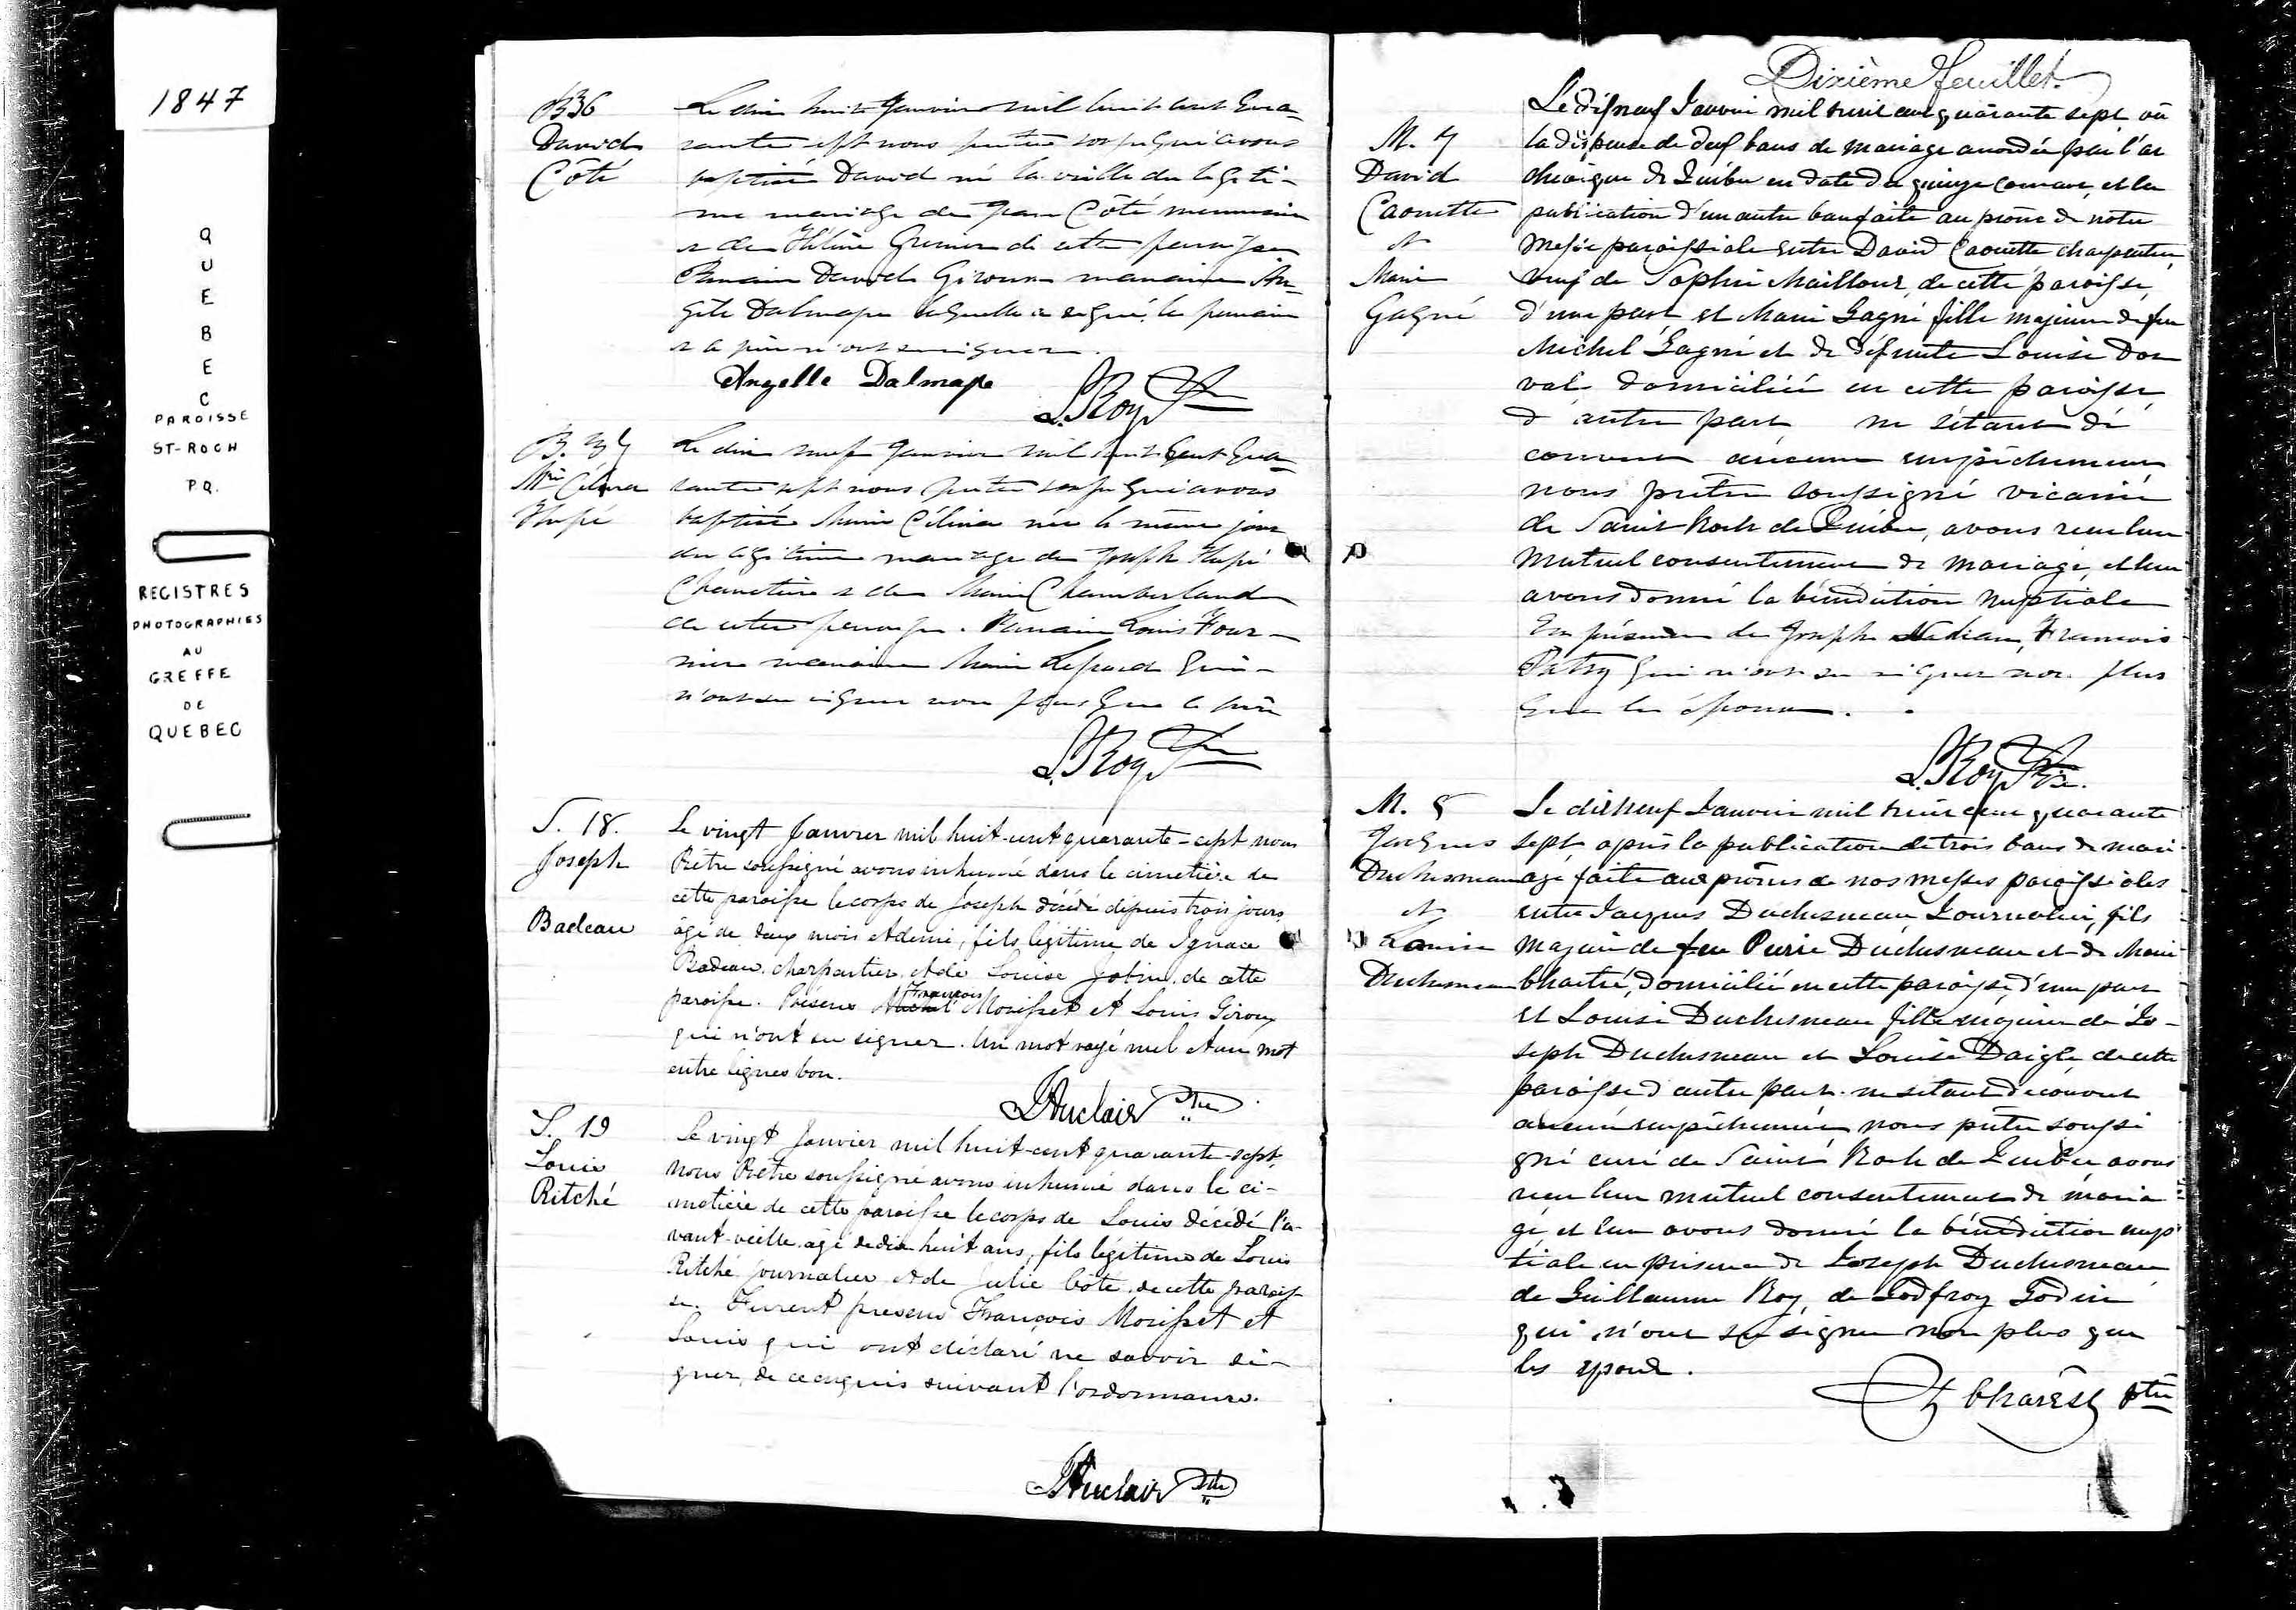 1847
QUEBEC
PAROISSE
ST-ROCH
PQ.
REGISTRES
PHOTOGRAPHIES
AU
GREFFE
DE
QUEBEC
B36
David
Côté
Le dix huit Janvier mil huit cent qua-
rante sept nous prêtre soussigné avons
baptisé David né la veille du légiti-
me mariage de Jean Côté menuisier
& de Hélène Grenier de cette paroisse
Parrain David Giroux marraine An-
gèle Dalmase laquelle a signé, le parrain
& le père n'ont su signer.
Angelle Dalmase
L. Roy Ptre
B. 37
Mie Célina
Hupé
Le dix neuf Janvier mil huit cent qua-
rante sept nous prêtre soussigné avons
baptisé Marie Célina née le même jour
du légitime mariage de Joseph Hupé
Charretier & de Marie Chamberland
de cette paroisse. Parrain Louis Four-
nier marraine Marie qui
n'ont su signer non plus que le père
L. Roy Ptre
S. 18.
Joseph
Badeau
Le vingt Janvier mil huit-cent quarante-sept nous
Prêtre soussigné avons inhumé dans le cimetière de
cette paroisse le corps de Joseph décédé depuis trois jours
âgé de deux mois et demi, fils légitime de Ignace
Badeau, charpentier, et de Louise Jobin, de cette
François
paroisse. Présens Michel Morisset et Louis Giroux
qui n'ont su signer. Un mot rayé nul et un mot
entre lignes bon.
J Auclair Ptre
S. 19
Louis
Ritché
Le vingt Janvier mil huit-cent quarante-sept,
nous Prêtre soussigné avons inhumé dans le ci-
metière de cette paroisse le corps de Louis décédé l'a-
vant-veille âgé de dix huit ans, fils légitime de Louis
Ritché journalier et de Julie Côté, de cette parois-
se. Furent présens François Morisset et
Louis qui ont déclaré ne savoir si-
gner, de ce enquis suivant l'ordonnance.
J Auclair Ptre
Dixième feuillet.
M. 7
David
Caouette
et
Marie
Gagné
Le dixneuf Janvier mil huit cent quarante sept, vû
la dispense de deux bans de mariage accordée par l'ar
chevêque de Québec en date du quinze courant, et la
publication d'un autre ban faite au prône de notre
Messe paroissiale entre David Caouette charpentier,
veuf de Sophie Mailloux, de cette paroisse,
d'une part et Marie Gagné fille majeure de feu
Michel Gagné et de défunte Louise Dor
val domiciliée en cette paroisse,
d'autre part, ne s'étant dé
couvert aucun empêchement
nous prêtre soussigné vicaire
de Saint Roch de Québec, avons reçu leur
mutuel consentement de mariage, et leur
avons donné la bénédiction nuptiale
En présence de Joseph Nadeau, François
Patry qui n'ont su signer non plus
que les époux.
L. Roy Ptre.
M. 8
Jacques
Duchesneau
et
Louise
Duchesneau
Le dixneuf Janvier mil huit cent quarante
sept, après la publication de trois bans de mari
age faite aux prônes de nos messes paroissiales
entre Jacques Duchesneau, Journalier, fils
majeur de feu Pierre Duchesneau et de Marie
Chartré, domicilié en cette paroisse, d'une part
et Louise Duchesneau fille majeure de Jo-
seph Duchesneau et Louise Daigle, de cette
paroisse d'autre part. ne s'étant découvert
aucun empêchement nous prêtre soussi
gné curé de Saint Roch de Québec avons
reçu leur mutuel consentement de maria
ge, et leur avons donné la bénédiction nup
tiale en présence de Joseph Duchesneau,
de Guillaume Roy, de Godfroy Godin
qui n'ont su signer non plus que
les époux.
Z Charest Ptre